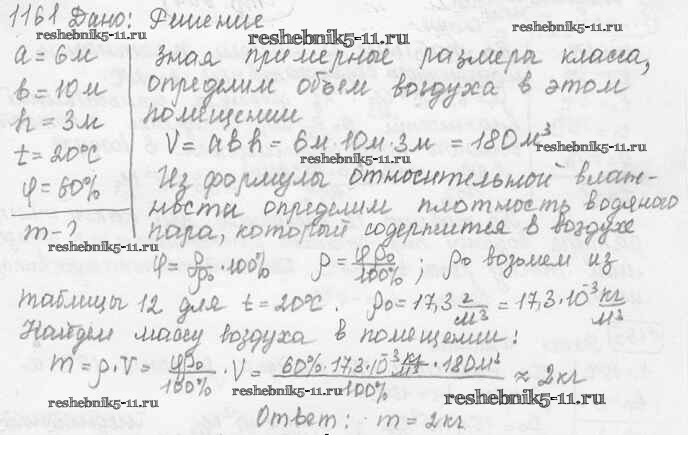 1161 Дано: Решение
reshebnik5-11.ru
reshebnik5-11.ru
reshebnik5-11.ru
a = 6м
Зная примерные размеры класса,
в = 10м
определим объем воздуха в этом
h = 3м
помещении
t = 20°C
V = a в h = 6м · 10м · 3м = 180м³
reshebnik5-11.ru
reshebnik5-11.ru
φ = 60%
Из формулы относительной влаж-
ности определим плотность водяного
m - ?
пара, который содержится в воздухе
reshebnik5-11.ru
φ = ρ/ρ₀ · 100% ρ = φρ₀/100% ; ρ₀ возьмем из
таблицы 12 для t = 20°C. ρ₀ = 17,3 г/м³ = 17,3·10⁻³ кг/м³
Найдем массу воздуха в помещении:
m = ρ·V = φρ₀/100% · V = 60% · 17,3·10⁻³ кг/м³ · 180м³/100% ≈ 2кг
reshebnik5-11.ru
reshebnik5-11.ru
reshebnik5-11.ru
Ответ: m = 2кг